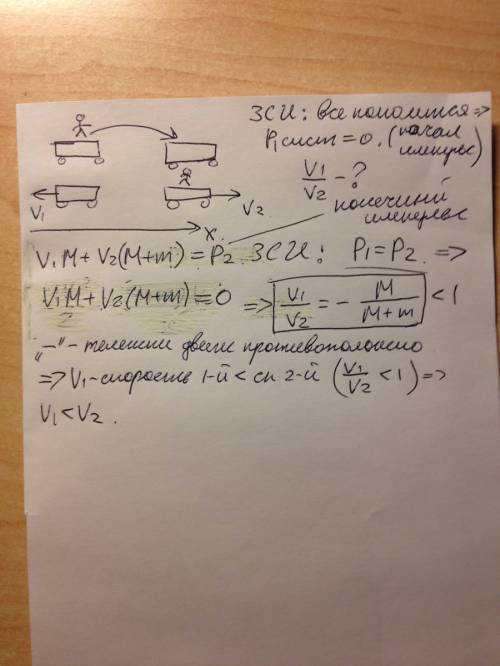 ЗСИ: все покоится =>
P₁сист = 0. (начал импульс)
V₁/V₂ - ?
конечный импульс
V₁ V₂
x
V₁M + V₂(M+m) = P₂. ЗСИ: P₁ = P₂. =>
V₁M + V₂(M+m) = 0 => V₁/V₂ = - M/(M+m) < 1
"-" - тележки движ противоположно
=> V₁ - скорость 1-й < ск 2-й (V₁/V₂ < 1) =>
V₁ < V₂.